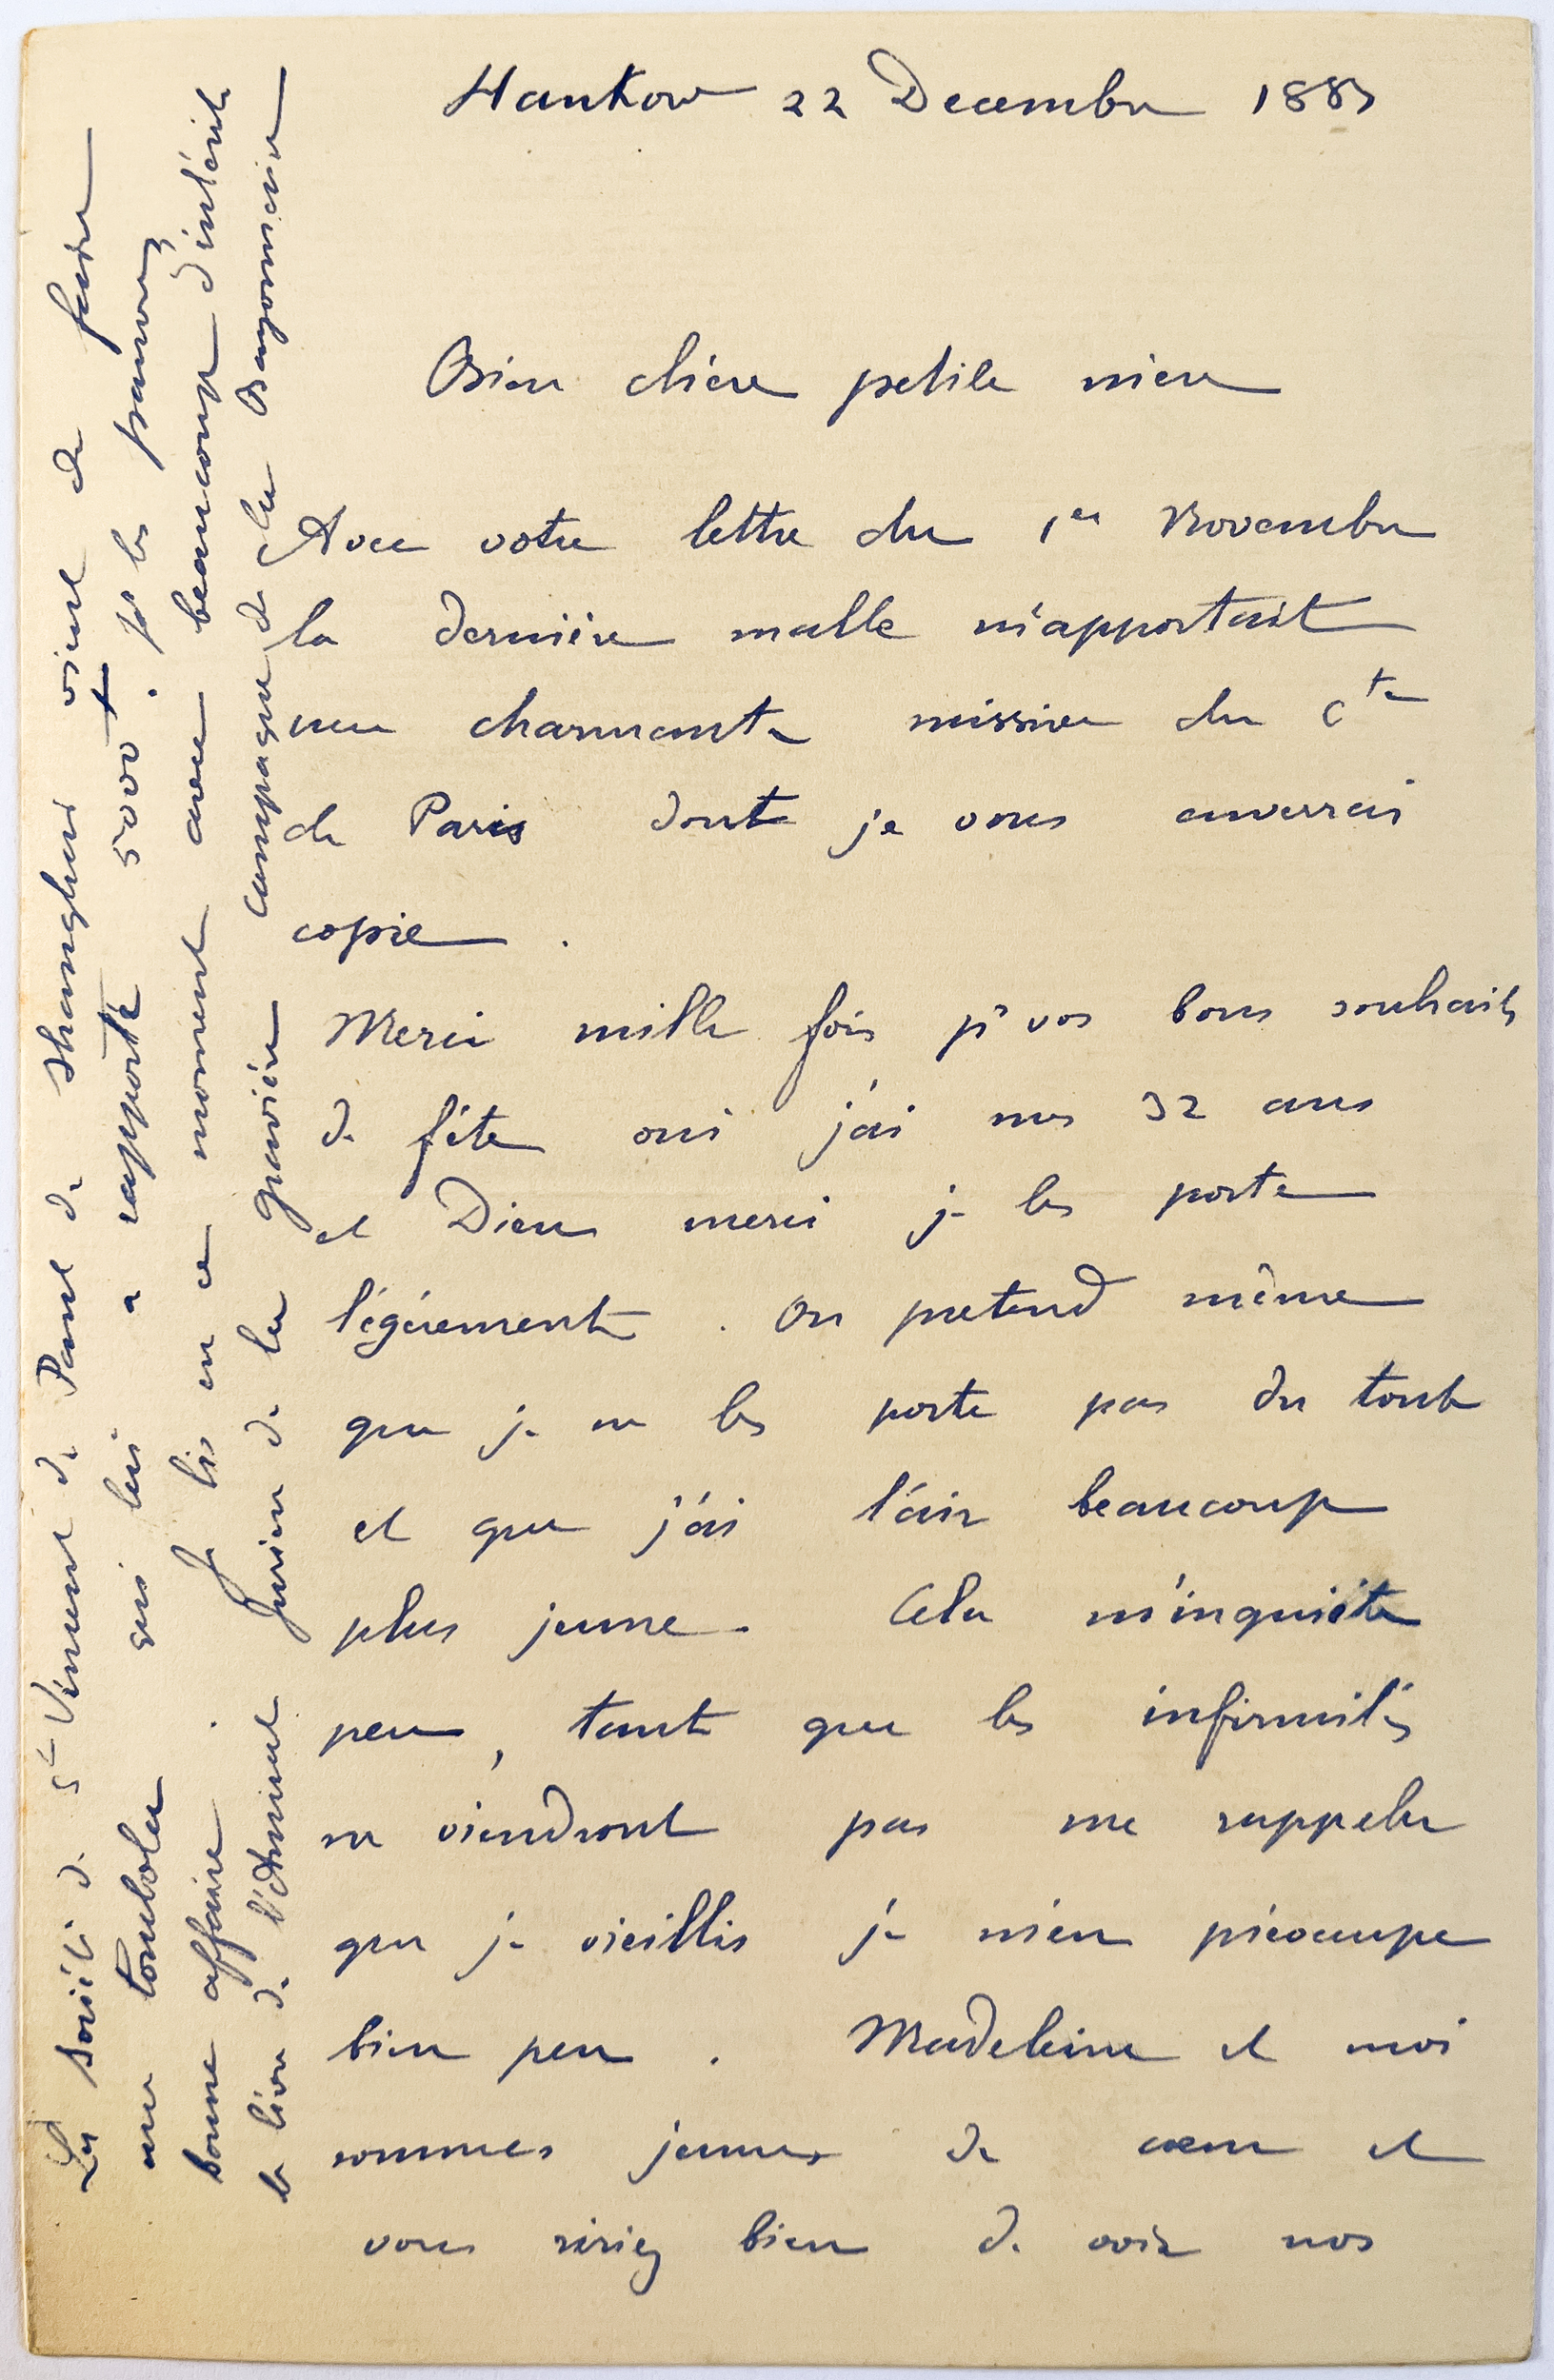 Hankow 22 Decembre 188
Bien chère petite mère
Avec votre lettre du 1er Novembre
la dernière malle m'apportait
une charmante missive du Cte
de Paris dont je vous enverrai
copie.
Merci mille fois pr vos bons souhaits
de fête oui j'ai mes 32 ans
et Dieu merci je les porte
légèrement. On pretend même
que je ne les porte pas du tout
et que j'ai l'air beaucoup
plus jeune. Cela m'inquiète
peu, tant que les infirmités
ne viendront pas me rappeler
que je vieillis je m'en préocupe
bien peu. Madeleine et moi
sommes jeunes de coeur et
vous ririez bien de voir nos
La société de St Vincent de Paul de Shanghai vient de faire
une tombola qui lui a rapporté 5000 . pr les pauvres
bonne affaire. Je lis en ce moment avec beaucoup d'intérêt
le livre de l'Amiral Jurien de la Gravière Campagne de la Bayonnaise